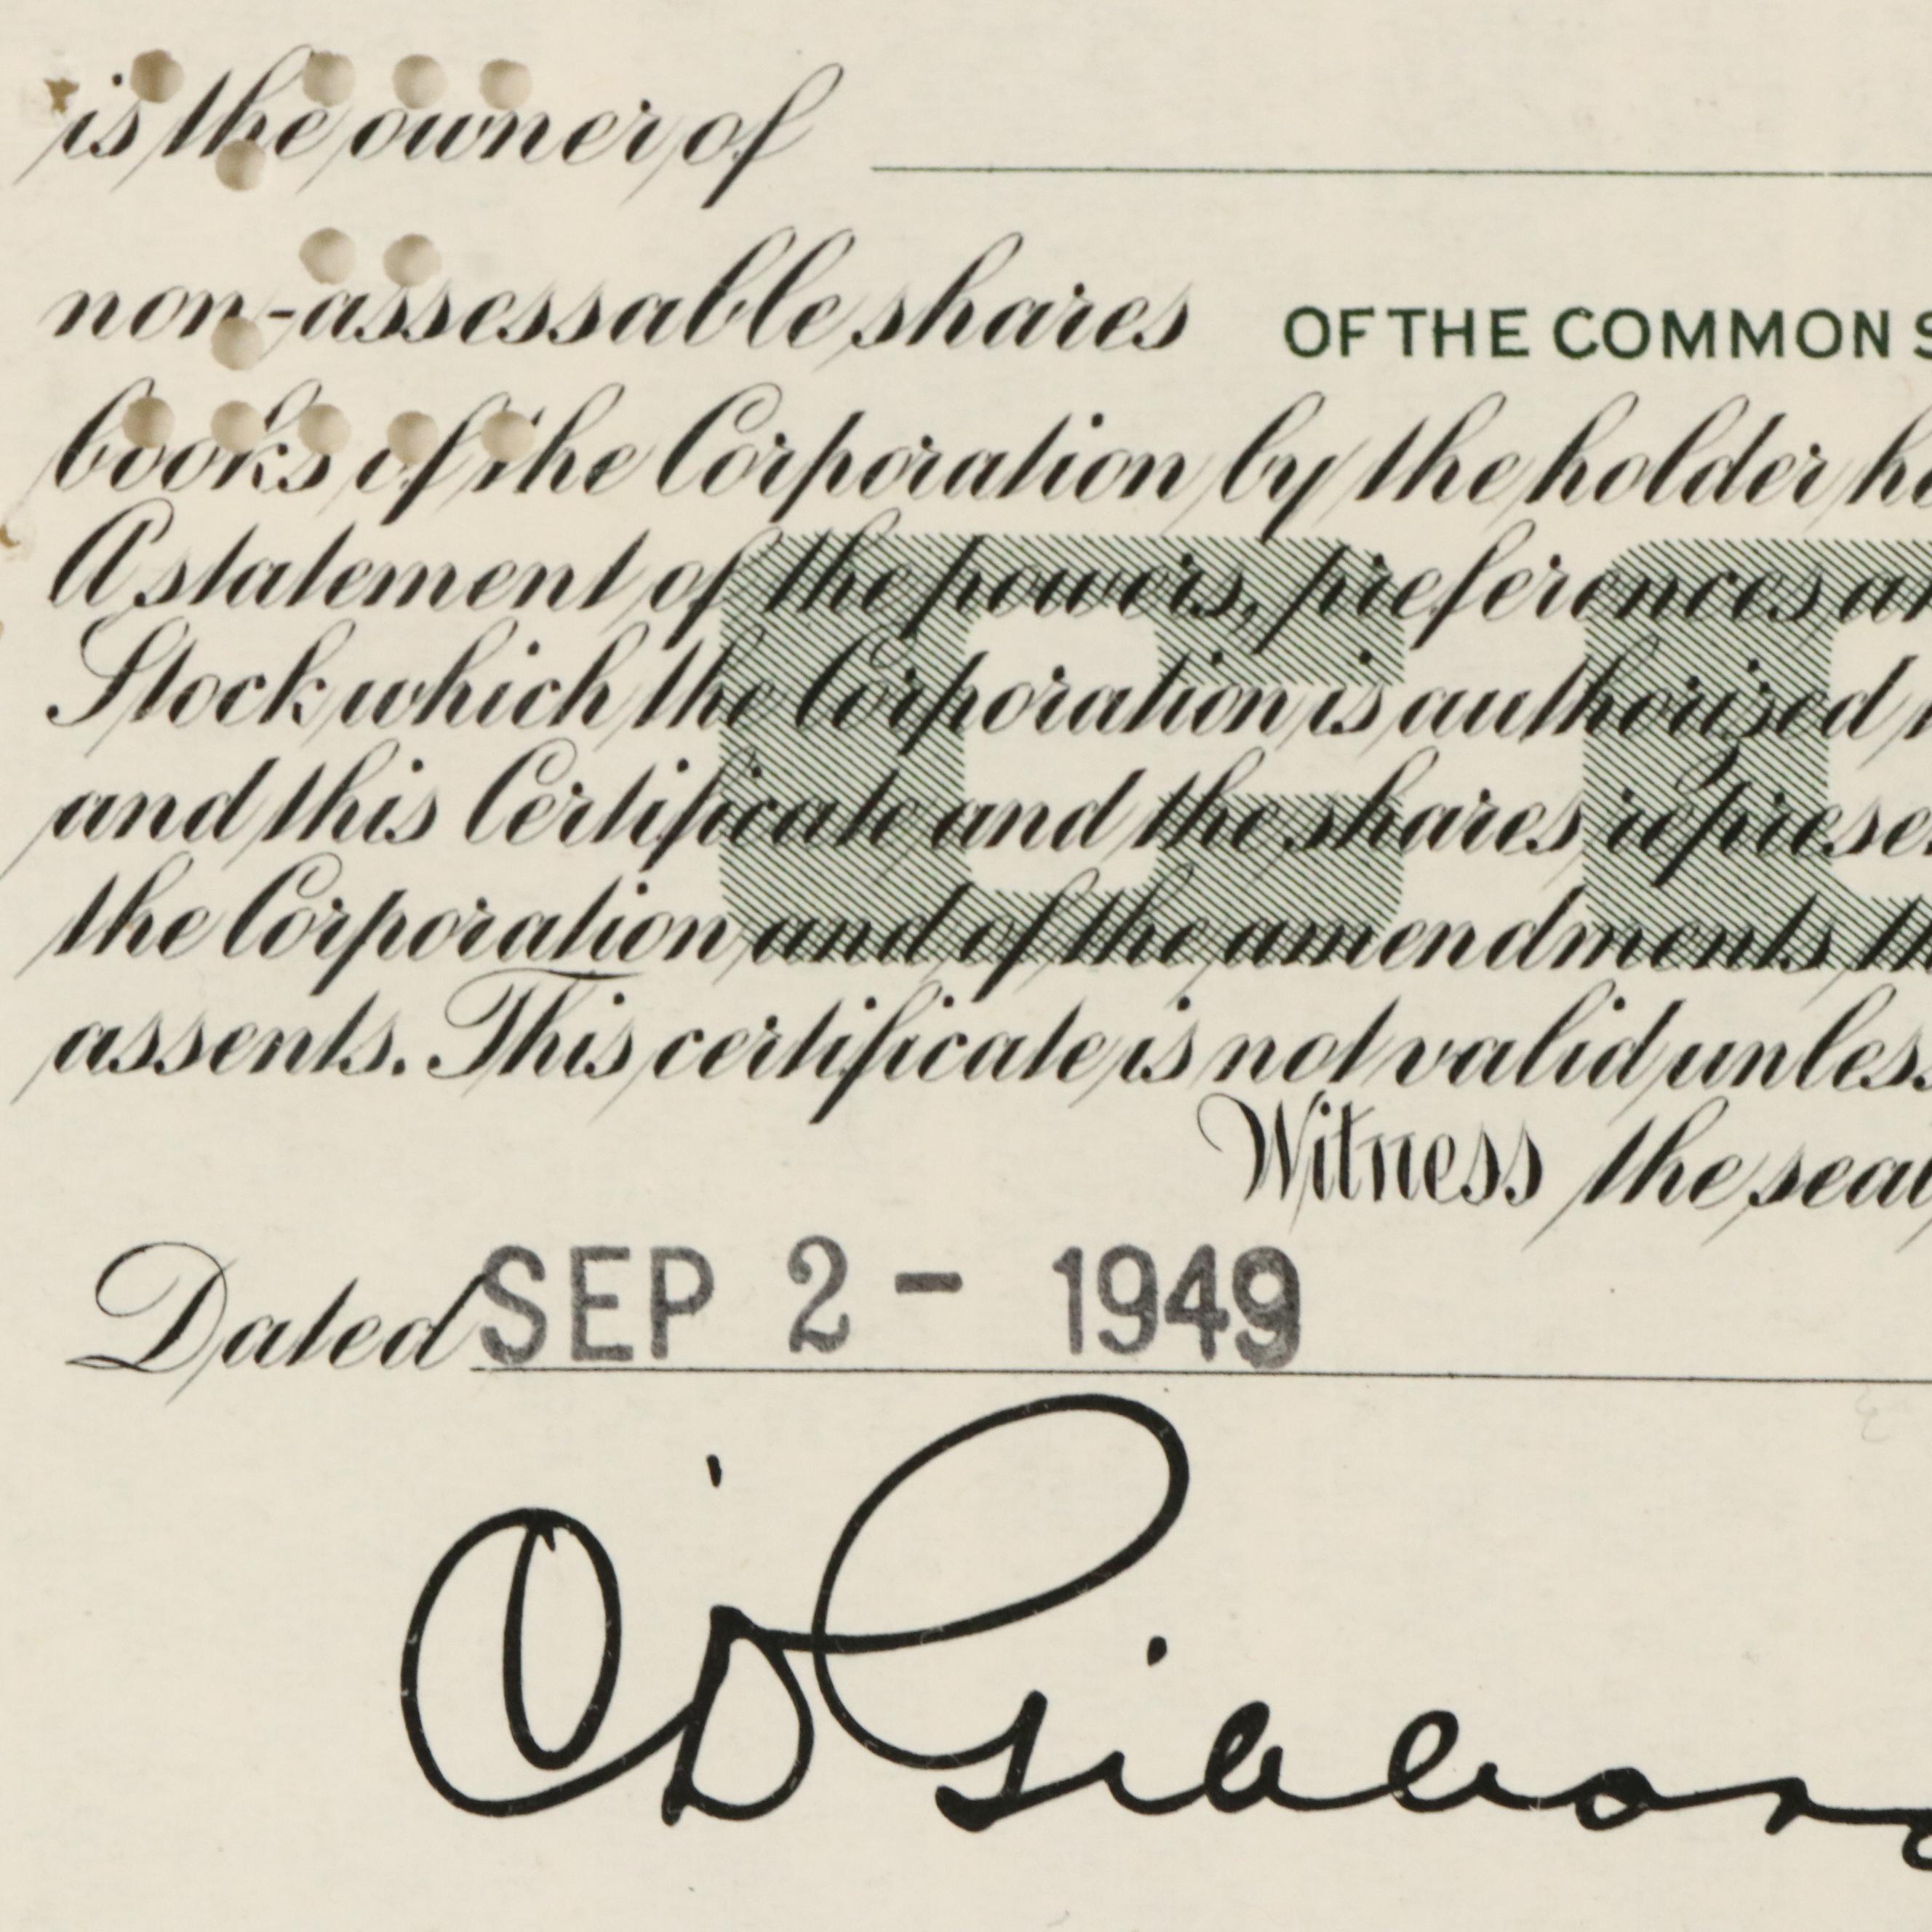 is the owner of
non-assessable shares OF THE COMMON S
books of the Corporation by the holder he
A statement of the powers, preferences an
Stock which the Corporation is authorized
and this Certificate and the shares represe
the Corporation and of the amendments th
assents. This certificate is not valid unless
Witness the seal
Dated SEP 2 - 1949